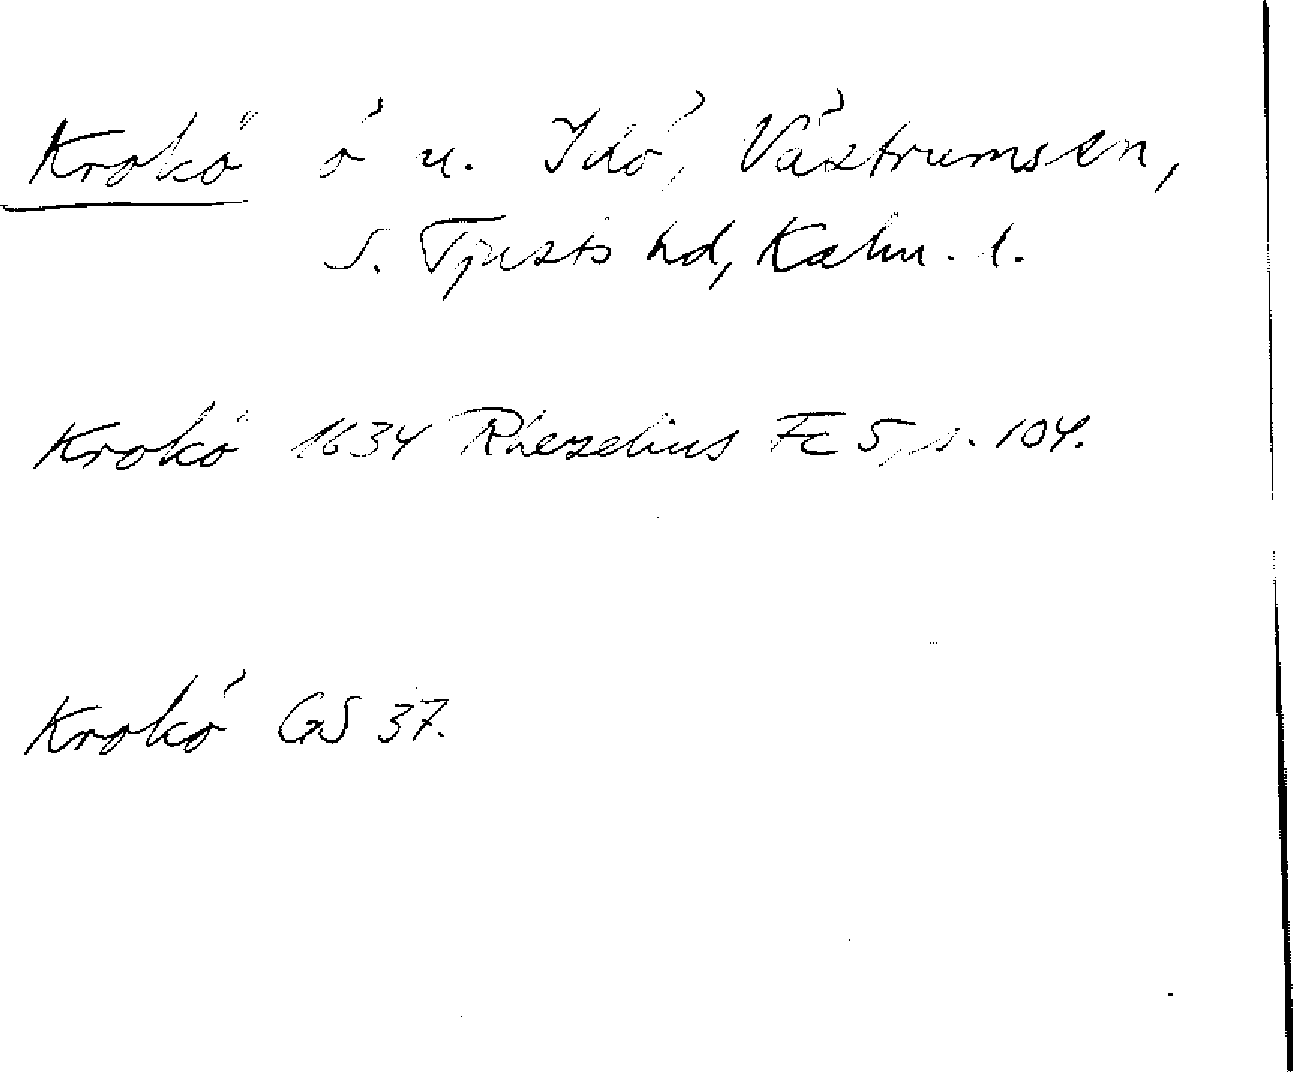 Krokö ö u. Idö, Västrums sn,
S. Tjusts hd, Kalm. l.
Krokö 1634 Rhezelius Fc 5, s. 104.
Krokö GS 37.